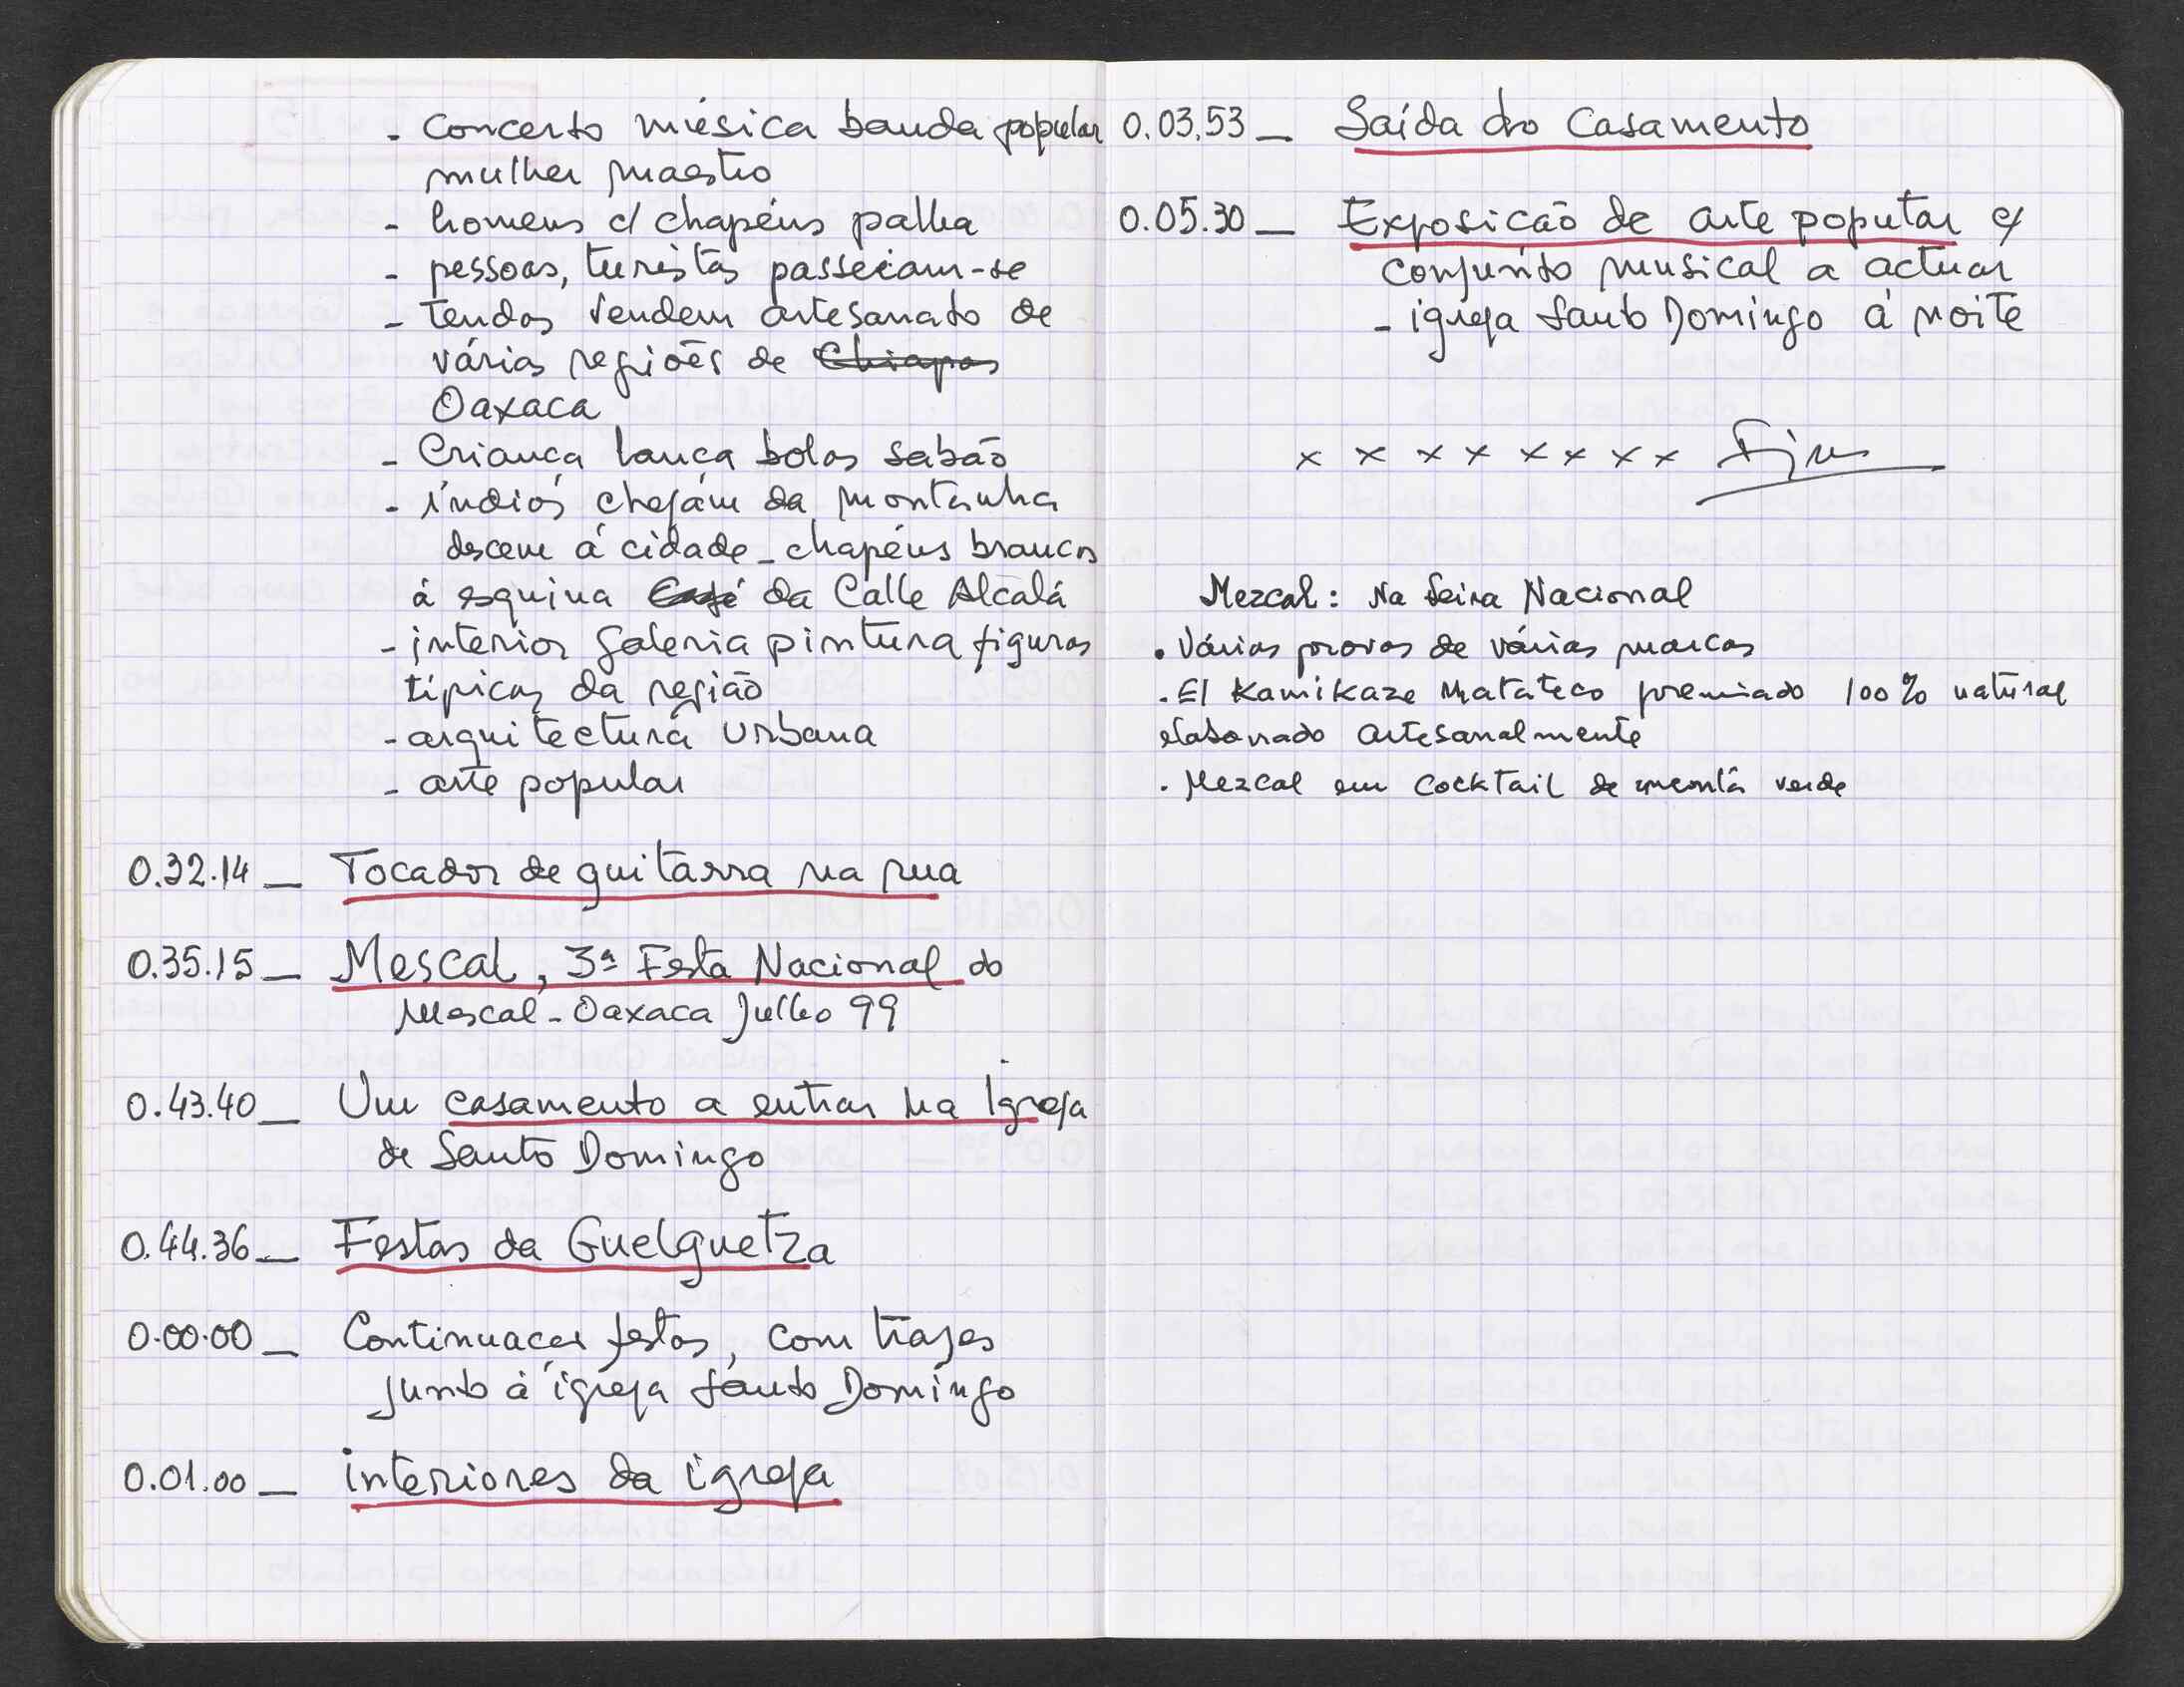 - Concerto música banda popular
mulher maestro
- homens c/ chapéus palha
- pessoas, turistas passeiam-se
- tendas vendem artesanato de
várias regiões de Chiapas
Oaxaca
- Criança lança bolas sabão
- índios chegam da montanha
descem á cidade - chapéus brancos
á esquina Café da Calle Alcalá
- interior galeria pintura figuras
típicas da região
- arquitectura urbana
- arte popular
0.32.14 _ Tocador de guitarra na rua
0.35.15 _ Mescal, 3ª Festa Nacional do
Mescal - Oaxaca Julho 99
0.43.40 _ Um casamento a entrar na Igreja
de Santo Domingo
0.44.36 _ Festas da Guelguetza
0.00.00 _ Continuação festas, com trajes
junto á igreja Santo Domingo
0.01.00 _ interiores da igreja
0.03.53 _ Saída do Casamento
0.05.30 _ Exposição de arte popular c/
conjunto musical a actuar
- igreja Santo Domingo á noite
x x x x x x x x Fim
Mezcal: Na feira Nacional
. Várias provas de várias marcas
. El Kamikaze Matateco premiado 100% natural
elaborado artesanalmente
. Mezcal em cocktail de menta verde